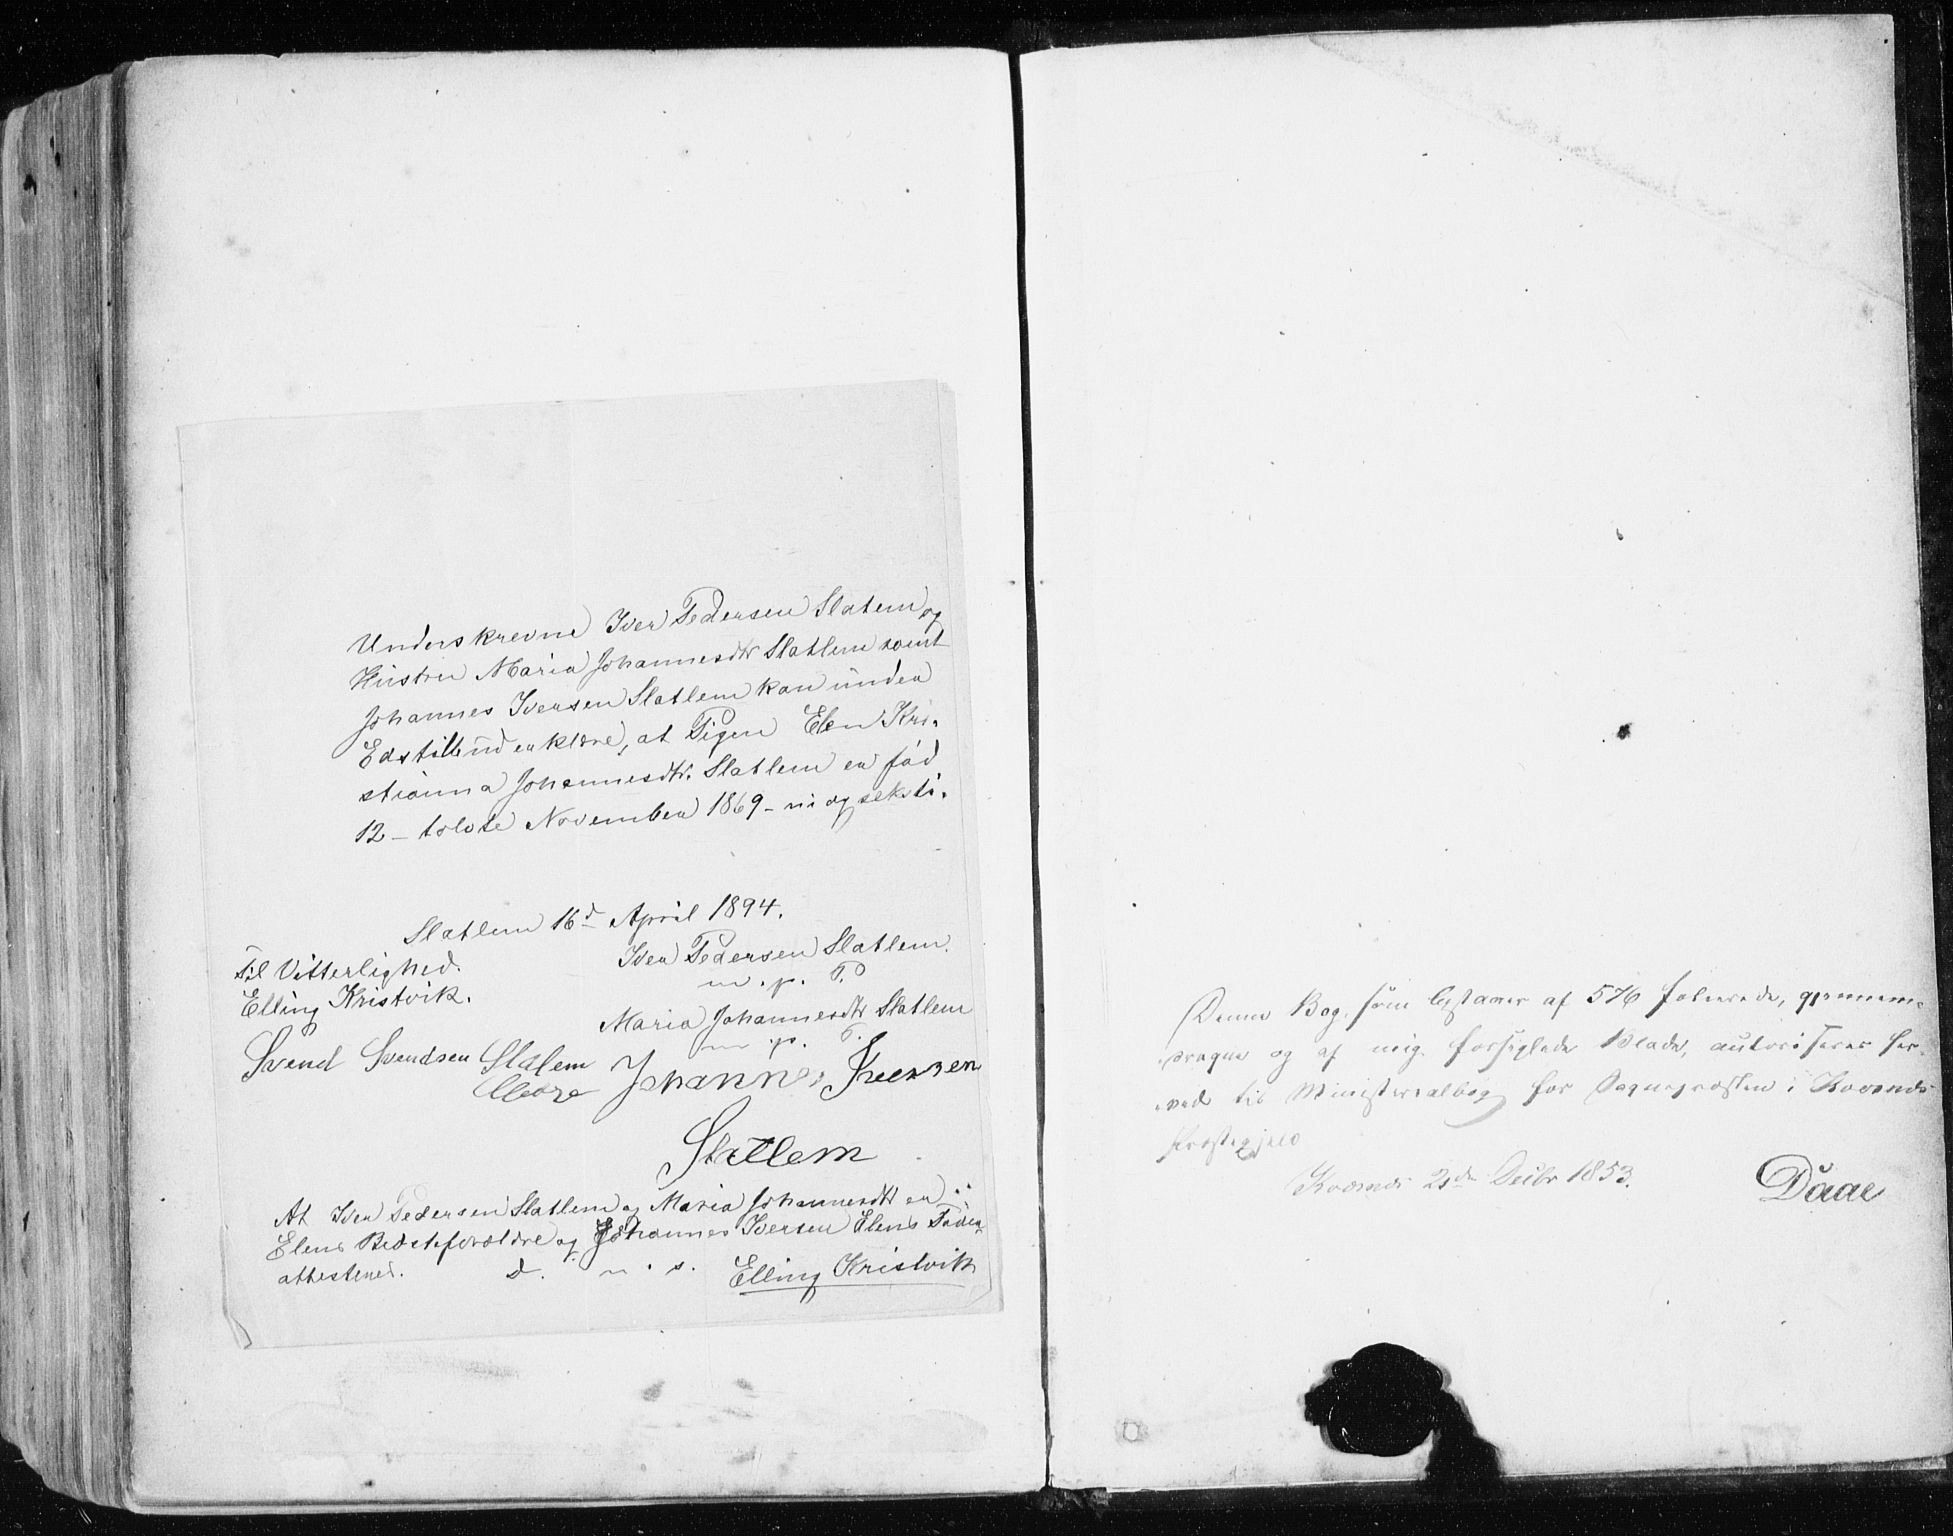 Underskrevne Iver Pedersen Slatlem og
Hustru Maria Johannesdtr Slatlem samt
Johannes Iversen Slatlem kan under
Edstilbud erklære, at Pigen Elen Kri-
stianna Johannesdtr. Slatlem er fød
12 – tolvte November 1869 – ni og seksti.
Slatlem 16d April 1894.
Til Vitterlighed.
Elling Kristvik.
Svend Svendsen Slalem
Iver Pedersen Slatlem.
m. p. P.
Maria Johannesdtr Slatlem
m. p. P.
Johannes Iversen
Slatlem
At Iver Pedersen Slatlem og Maria Johannesdtr er
Elens Bedsteforældre og Johannes Iversen Elens Fader
attesteres. d. u. s. Elling Kristvik
Denne Bog, som bestaaer af 576 folierede, gjennem-
dragne og af mig forseglede Blade, autoriseres her-
ved til Ministerialbog for Sognepræsten i Kvernes
Præstegjeld
Kvernes 2den Decbr 1853.
Daae